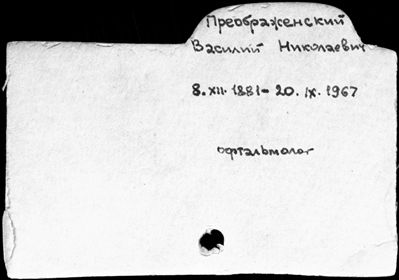 Преображенский
Василий Николаевич
8.XII.1881-20.IX.1967
офтальмолог